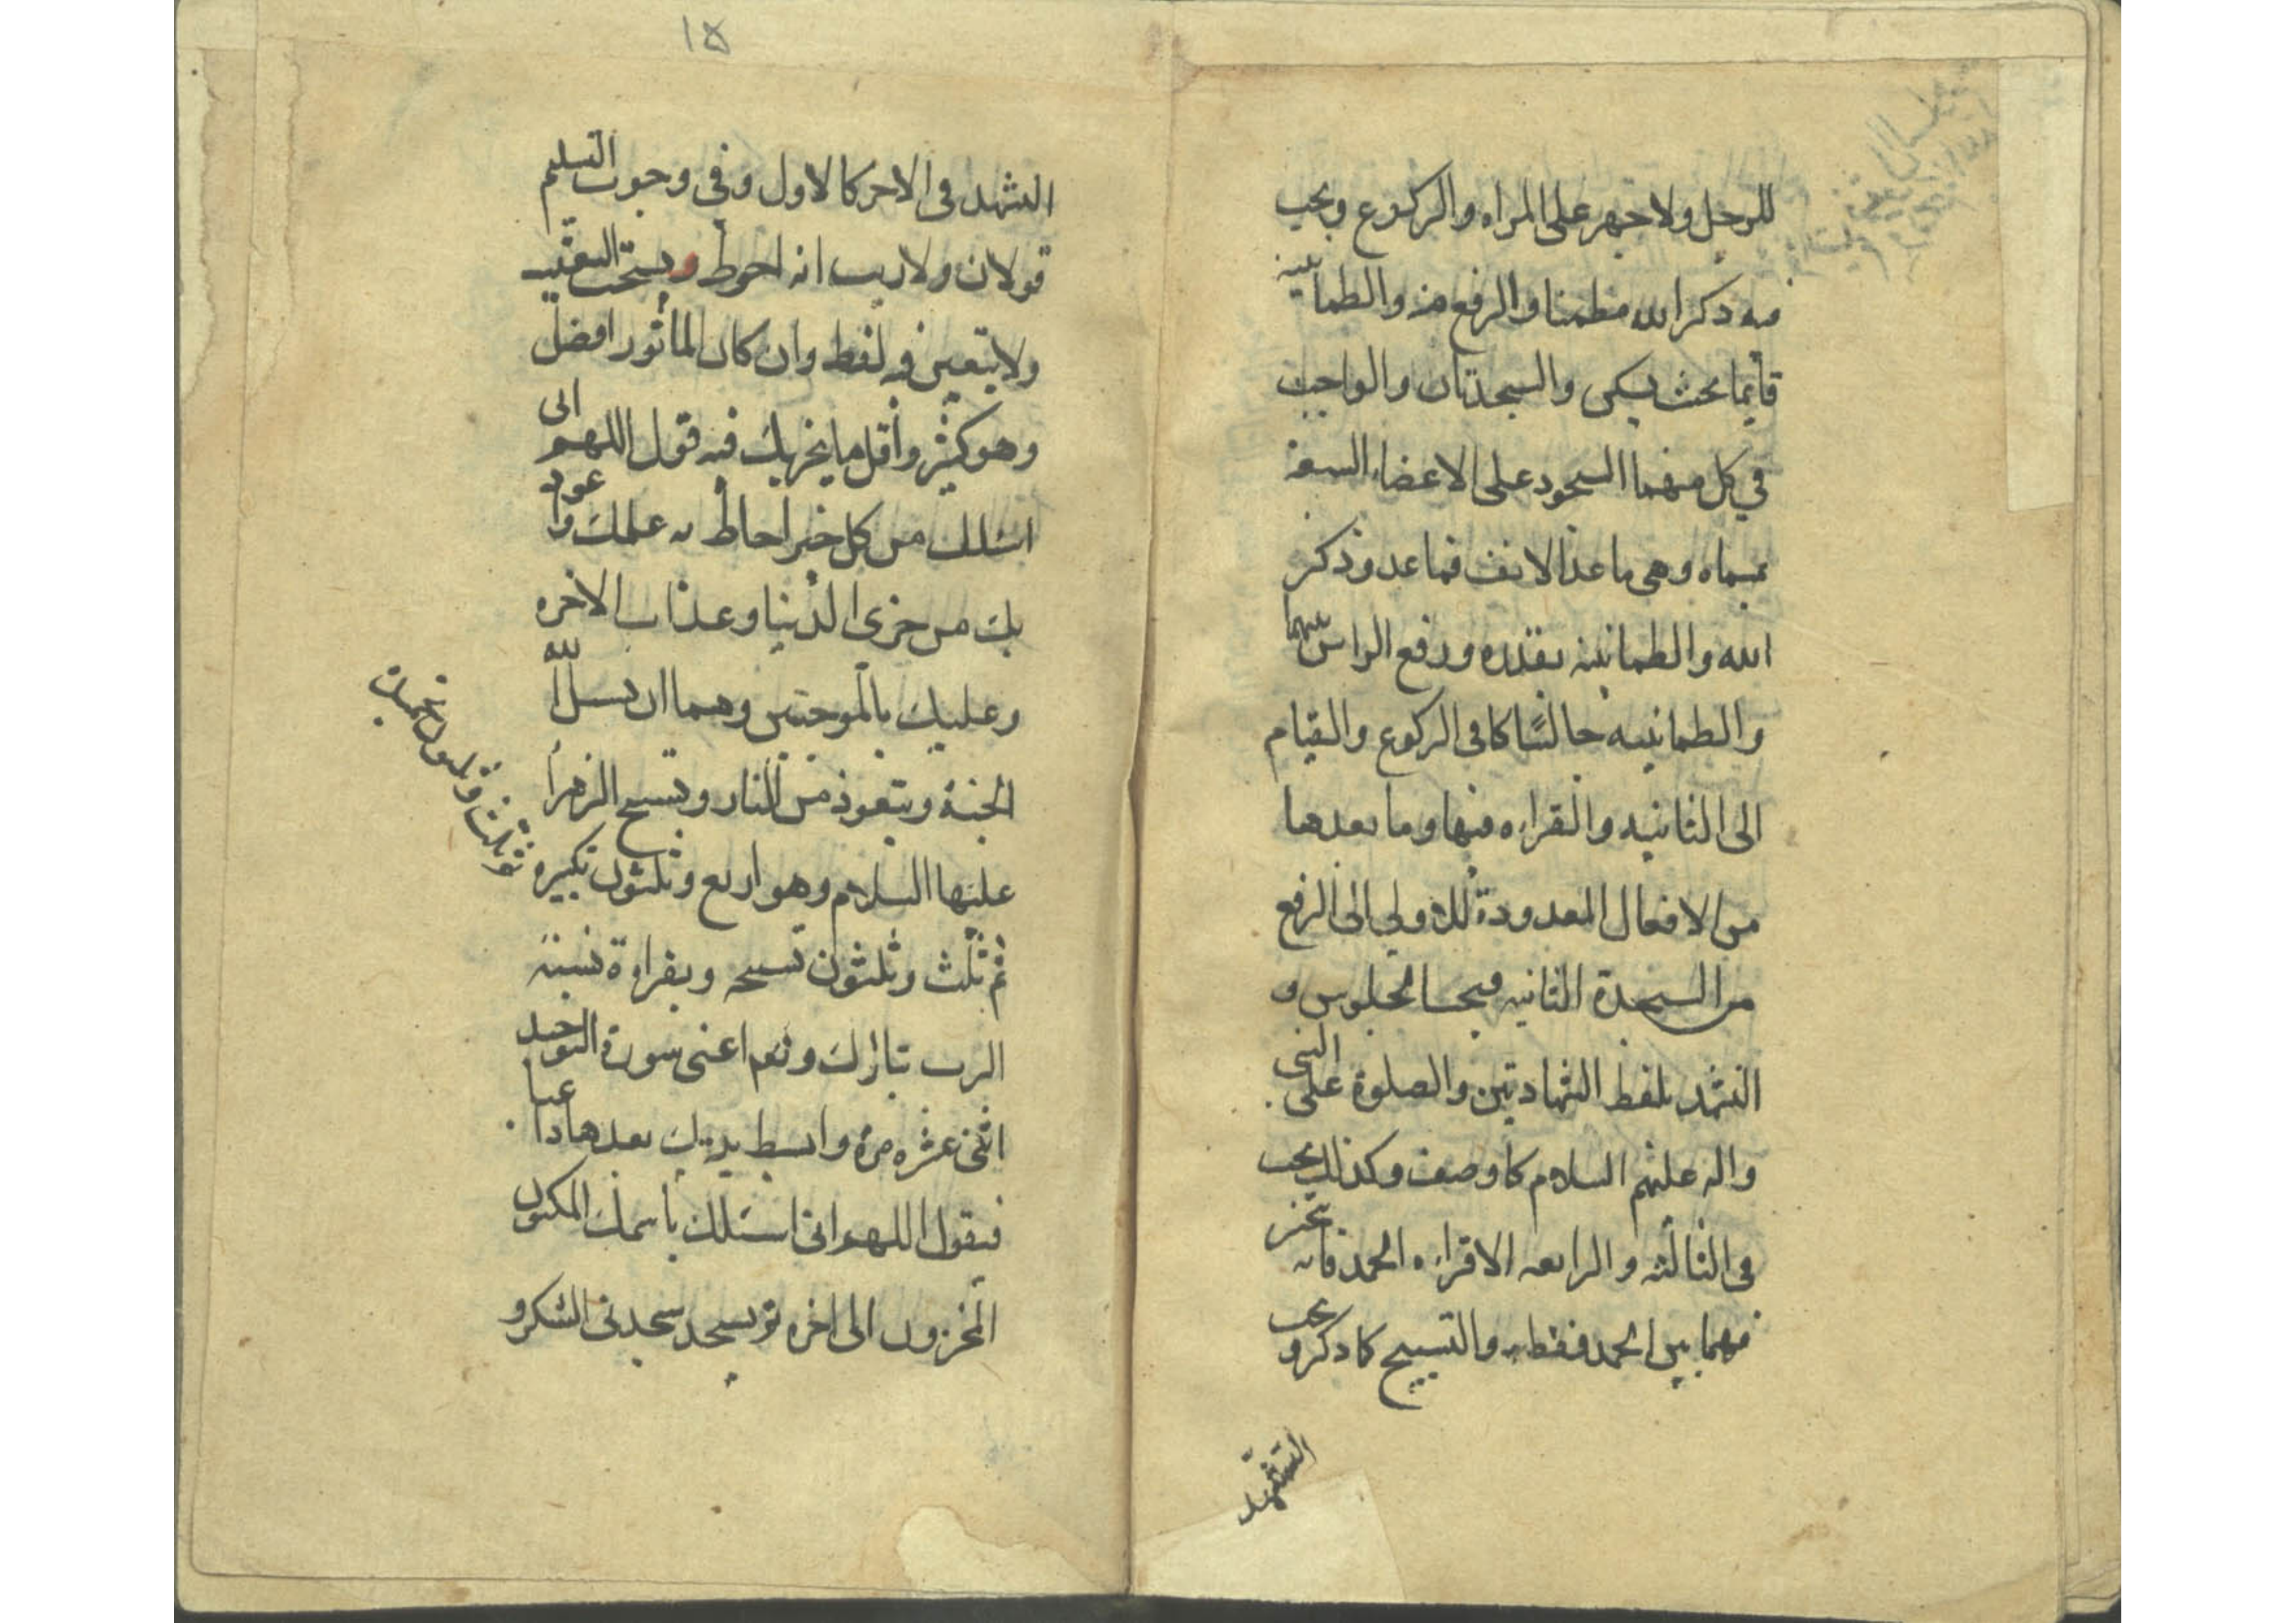 للرجل ولا جهر على المراه والركوع ويجب
فيه ذكر الله مطمئنا والرفع منه والطمانينة
قائما بحيث يسكن والسجدتان والواجب
في كل منهما السجود على الاعضاء السبعة
وهي ما عدا الانف فيما عد وذكر
الله والطمانينه بقدره ورفع الراس منهما
والطمانينه جالسًا كما في الركوع والقيام
الى الثانيه والقراءه فيها وما بعدها
من الافعال المعدودة للاولى الى الرفع
من السجدة الثانيه فيجب الجلوس و
التشهد بلفظ الشهادتين والصلوة على النبى
واله عليهم السلام كما وصف وكذلك يجب
فى الثالثه والرابعه الا قراءه الحمد فانه يتخير
فيهما بين الحمد فقط والتسبيح كما ذكر ويجب
التشهد
١٥
التشهد فى الاخر كالاول وفي وجوب التسليم
قولان ولا ريب انه احوط ويستحب التعقيب
ولا يتعين فيه لفظ وان كان المأثور افضل
وهو كثير وأقل ما يجزيك فيه قول اللهم انى
اسئلك من كل خير احاط به علمك واعوذ
بك من خزى الدنيا وعذاب الاخره
وعليك بالموجبتين وهما ان تسل الله
الجنة وتتعوذ من النار وتسبيح الزهرا
عليها السلام وهو اربع وثلثون تكبيره
ثم ثلث وثلثون تحميدة
ثم ثلث وثلثون تسبيحه وبقراءة نسبة
الرب تبارك وتعم اعنى سورة التوحيد
اثنى عشره مرة وابسط يديك بعدها داعيا
فيقول اللهم انى اسئلك باسمك المكنون
المخزون الى اخره ثم يسجد سجدتى الشكر و